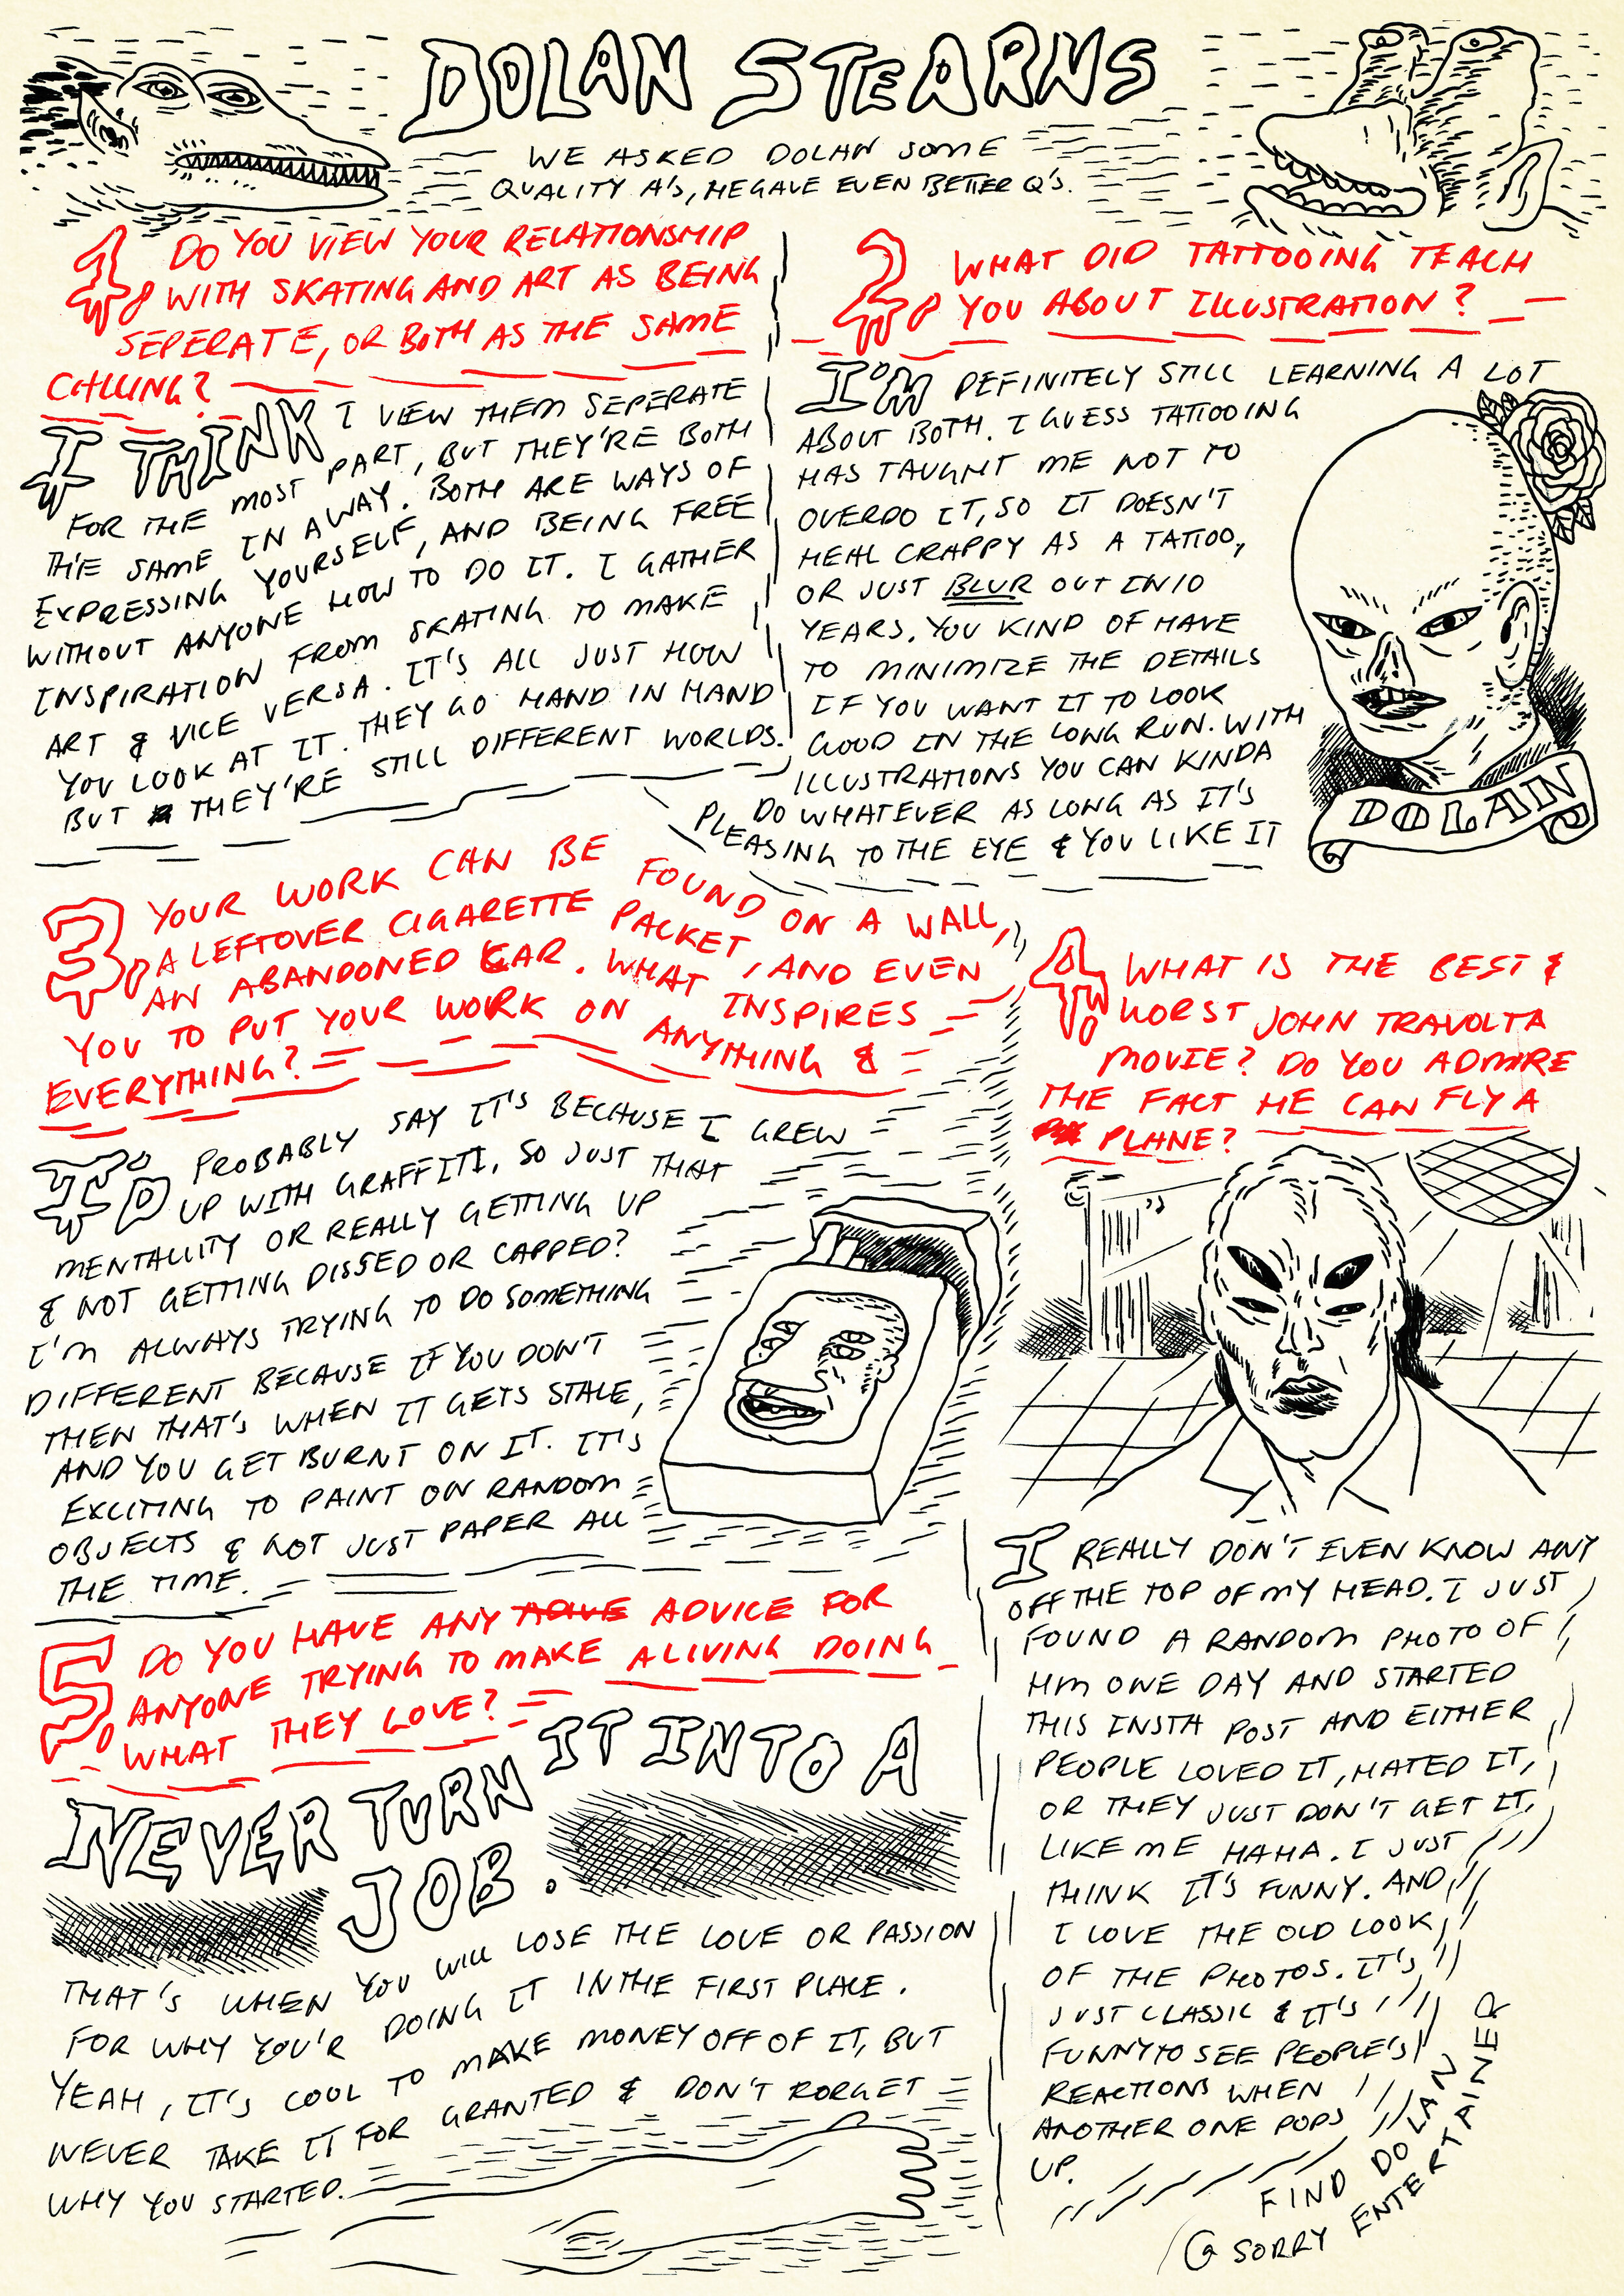 DOLAN STEARNS
WE ASKED DOLAN SOME
QUALITY A'S, HE GAVE EVEN BETTER Q'S.
1. DO YOU VIEW YOUR RELATIONSHIP
WITH SKATING AND ART AS BEING
SEPERATE, OR BOTH AS THE SAME
CALLING?
I THINK I VIEW THEM SEPERATE
FOR THE MOST PART, BUT THEY'RE BOTH
THE SAME IN A WAY. BOTH ARE WAYS OF
EXPRESSING YOURSELF, AND BEING FREE
WITHOUT ANYONE HOW TO DO IT. I GATHER
INSPIRATION FROM SKATING TO MAKE
ART & VICE VERSA. IT'S ALL JUST HOW
YOU LOOK AT IT. THEY GO HAND IN HAND
BUT THEY'RE STILL DIFFERENT WORLDS.
2. WHAT DID TATTOOING TEACH
YOU ABOUT ILLUSTRATION?
I'M DEFINITELY STILL LEARNING A LOT
ABOUT BOTH. I GUESS TATTOOING
HAS TAUGHT ME NOT TO
OVERDO IT, SO IT DOESN'T
HEAL CRAPPY AS A TATTOO,
OR JUST BLUR OUT IN 10
YEARS. YOU KIND OF HAVE
TO MINIMIZE THE DETAILS
IF YOU WANT IT TO LOOK
GOOD IN THE LONG RUN. WITH
ILLUSTRATIONS YOU CAN KINDA
DO WHATEVER AS LONG AS IT'S
PLEASING TO THE EYE & YOU LIKE IT
DOLAN
3. YOUR WORK CAN BE FOUND ON A WALL,
A LEFTOVER CIGARETTE PACKET, AND EVEN
AN ABANDONED CAR. WHAT INSPIRES
YOU TO PUT YOUR WORK ON ANYTHING &
EVERYTHING?
I'D PROBABLY SAY IT'S BECAUSE I GREW
UP WITH GRAFFITI, SO JUST THAT
MENTALLITY OR REALLY GETTING UP
& NOT GETTING DISSED OR CAPPED?
I'M ALWAYS TRYING TO DO SOMETHING
DIFFERENT BECAUSE IF YOU DON'T
THEN THAT'S WHEN IT GETS STALE,
AND YOU GET BURNT ON IT. IT'S
EXCITING TO PAINT ON RANDOM
OBJECTS & NOT JUST PAPER ALL
THE TIME.
4. WHAT IS THE BEST &
WORST JOHN TRAVOLTA
MOVIE? DO YOU ADMIRE
THE FACT HE CAN FLY A
PLANE?
I REALLY DON'T EVEN KNOW ANY
OFF THE TOP OF MY HEAD. I JUST
FOUND A RANDOM PHOTO OF
HIM ONE DAY AND STARTED
THIS INSTA POST AND EITHER
PEOPLE LOVED IT, HATED IT,
OR THEY JUST DON'T GET IT,
LIKE ME HAHA. I JUST
THINK IT'S FUNNY. AND
I LOVE THE OLD LOOK
OF THE PHOTOS. IT'S
JUST CLASSIC & IT'S
FUNNY TO SEE PEOPLE'S
REACTIONS WHEN
ANOTHER ONE POPS
UP.
5. DO YOU HAVE ANY ADVICE FOR
ANYONE TRYING TO MAKE A LIVING DOING
WHAT THEY LOVE?
NEVER TURN IT INTO A
JOB.
THAT'S WHEN YOU WILL LOSE THE LOVE OR PASSION
FOR WHY YOU'R DOING IT IN THE FIRST PLACE.
YEAH, IT'S COOL TO MAKE MONEY OFF OF IT, BUT
NEVER TAKE IT FOR GRANTED & DON'T RORGET
WHY YOU STARTED.
FIND DOLAN
@ SORRY ENTERTAINER